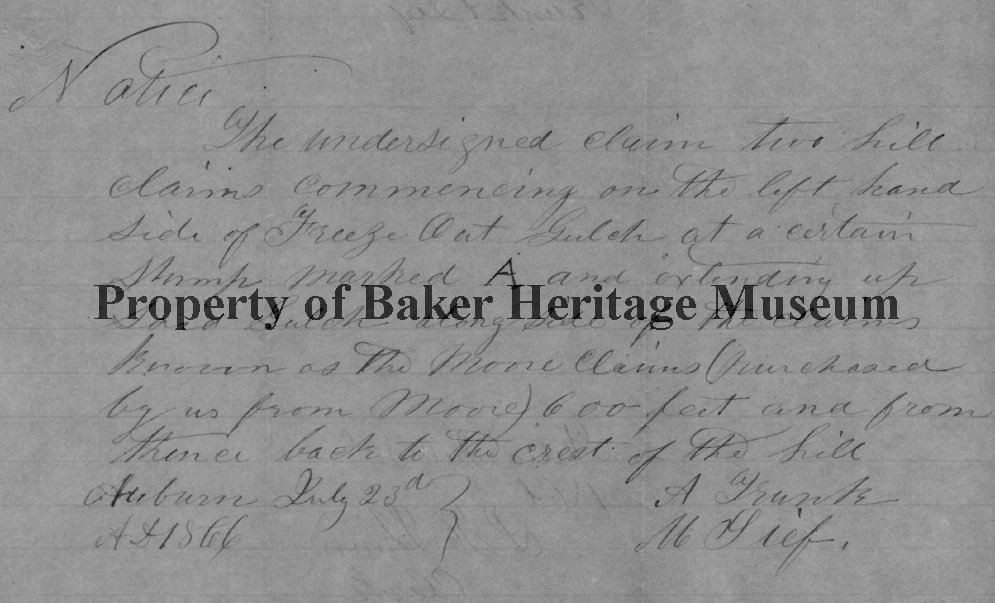 Notice
The undersigned claim two hill
claims commencing on the left hand
side of Freeze Out Gulch at a certain
stump marked A and extending up
Property of Baker Heritage Museum
said Gulch along side of the claims
known as the Moore Claims (purchased
by us from Moore) 600 feet and from
thence back to the crest of the hill
Auburn July 23d
A Trunk
AD 1866
M Gief.